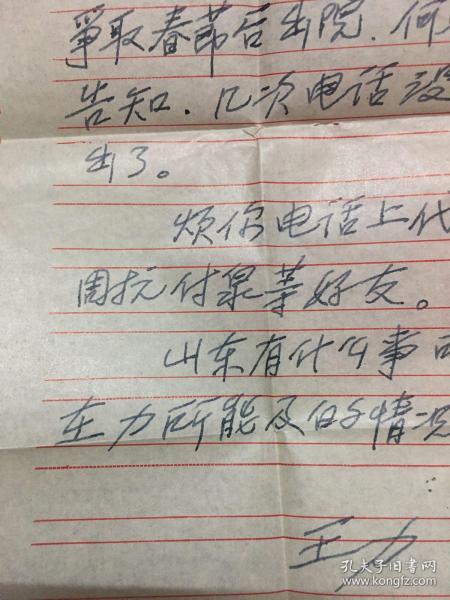 爭取春節后出院.何
告知.几次电话没
出了。
烦你电话上代
周抗付泉等好友。
山东有什么事可
在力所能及的情况
王力
孔夫子旧书网
www.kongfz.com